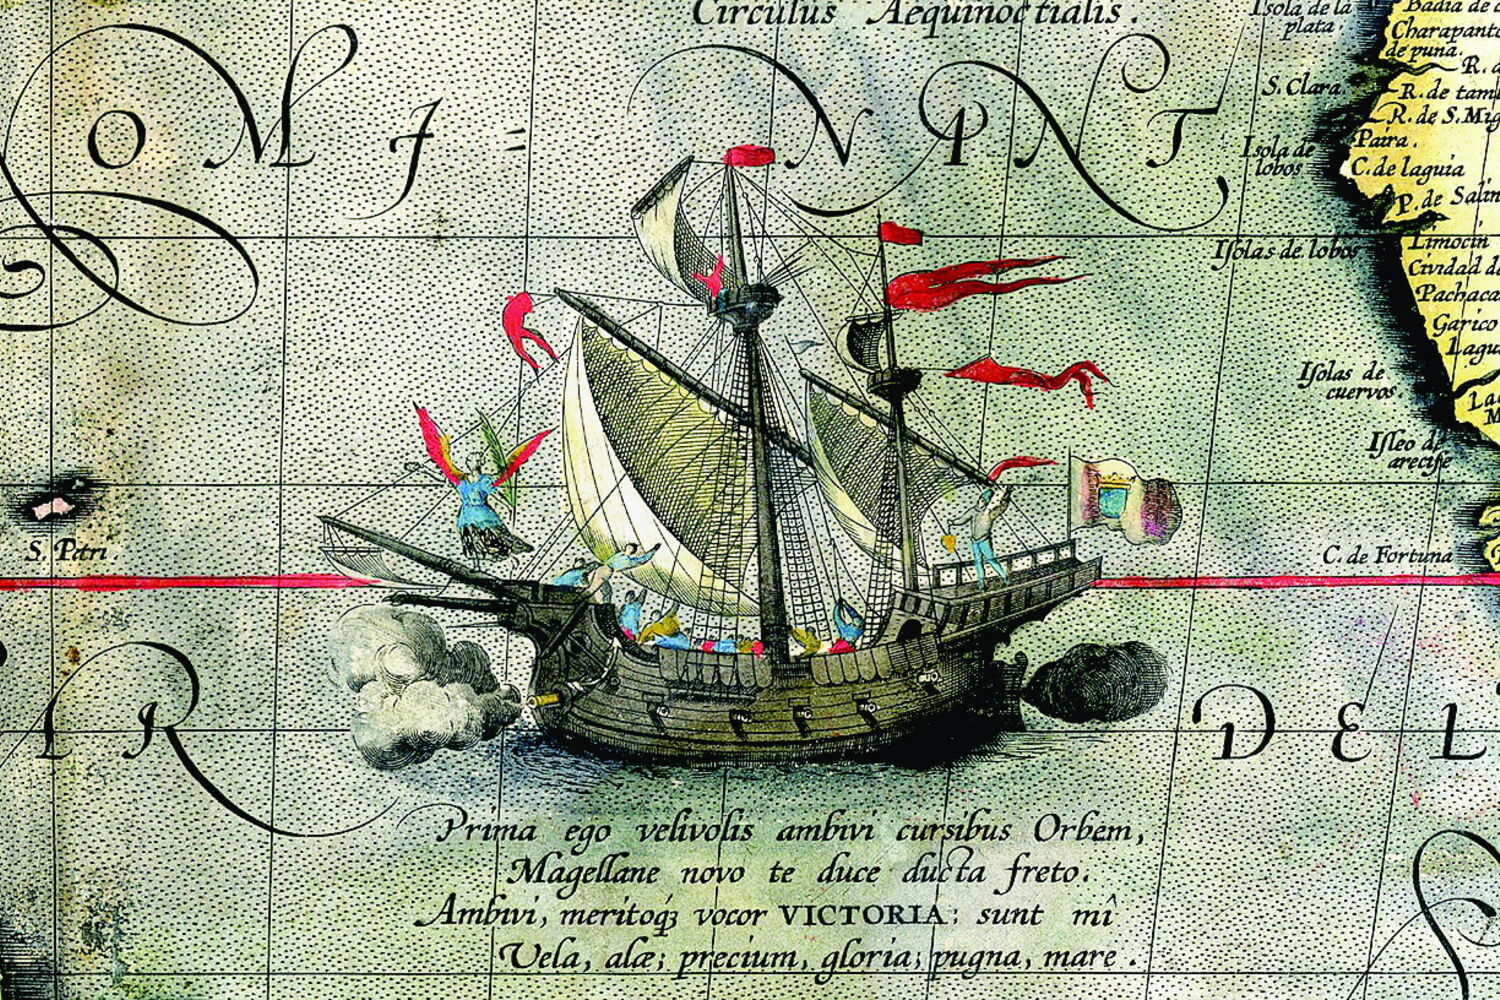 Circulus Aequinoctialis.
Isola de la
plata
Badia de
Charapanto
de puna.
R. d
S. Clara
R. de tam
R. de S. Mig
OMI=
NANT,
Isola de
lobos
Paira.
C. de laguia
P. de Salin
Isolas de lobos
Limocin
Cividad d
Pachaca
Garico
Lagu
Isolas de
cuervos
La
M
Isleo de
arecife
S. Petri.
C. de Fortuna
IR
DEL
Prima ego velivolis ambivi cursibus Orbem,
Magellane novo te duce ducta freto.
Ambivi, meritoqꝫ vocor VICTORIA: sunt mî
Vela, alæ; precium, gloria; pugna, mare.